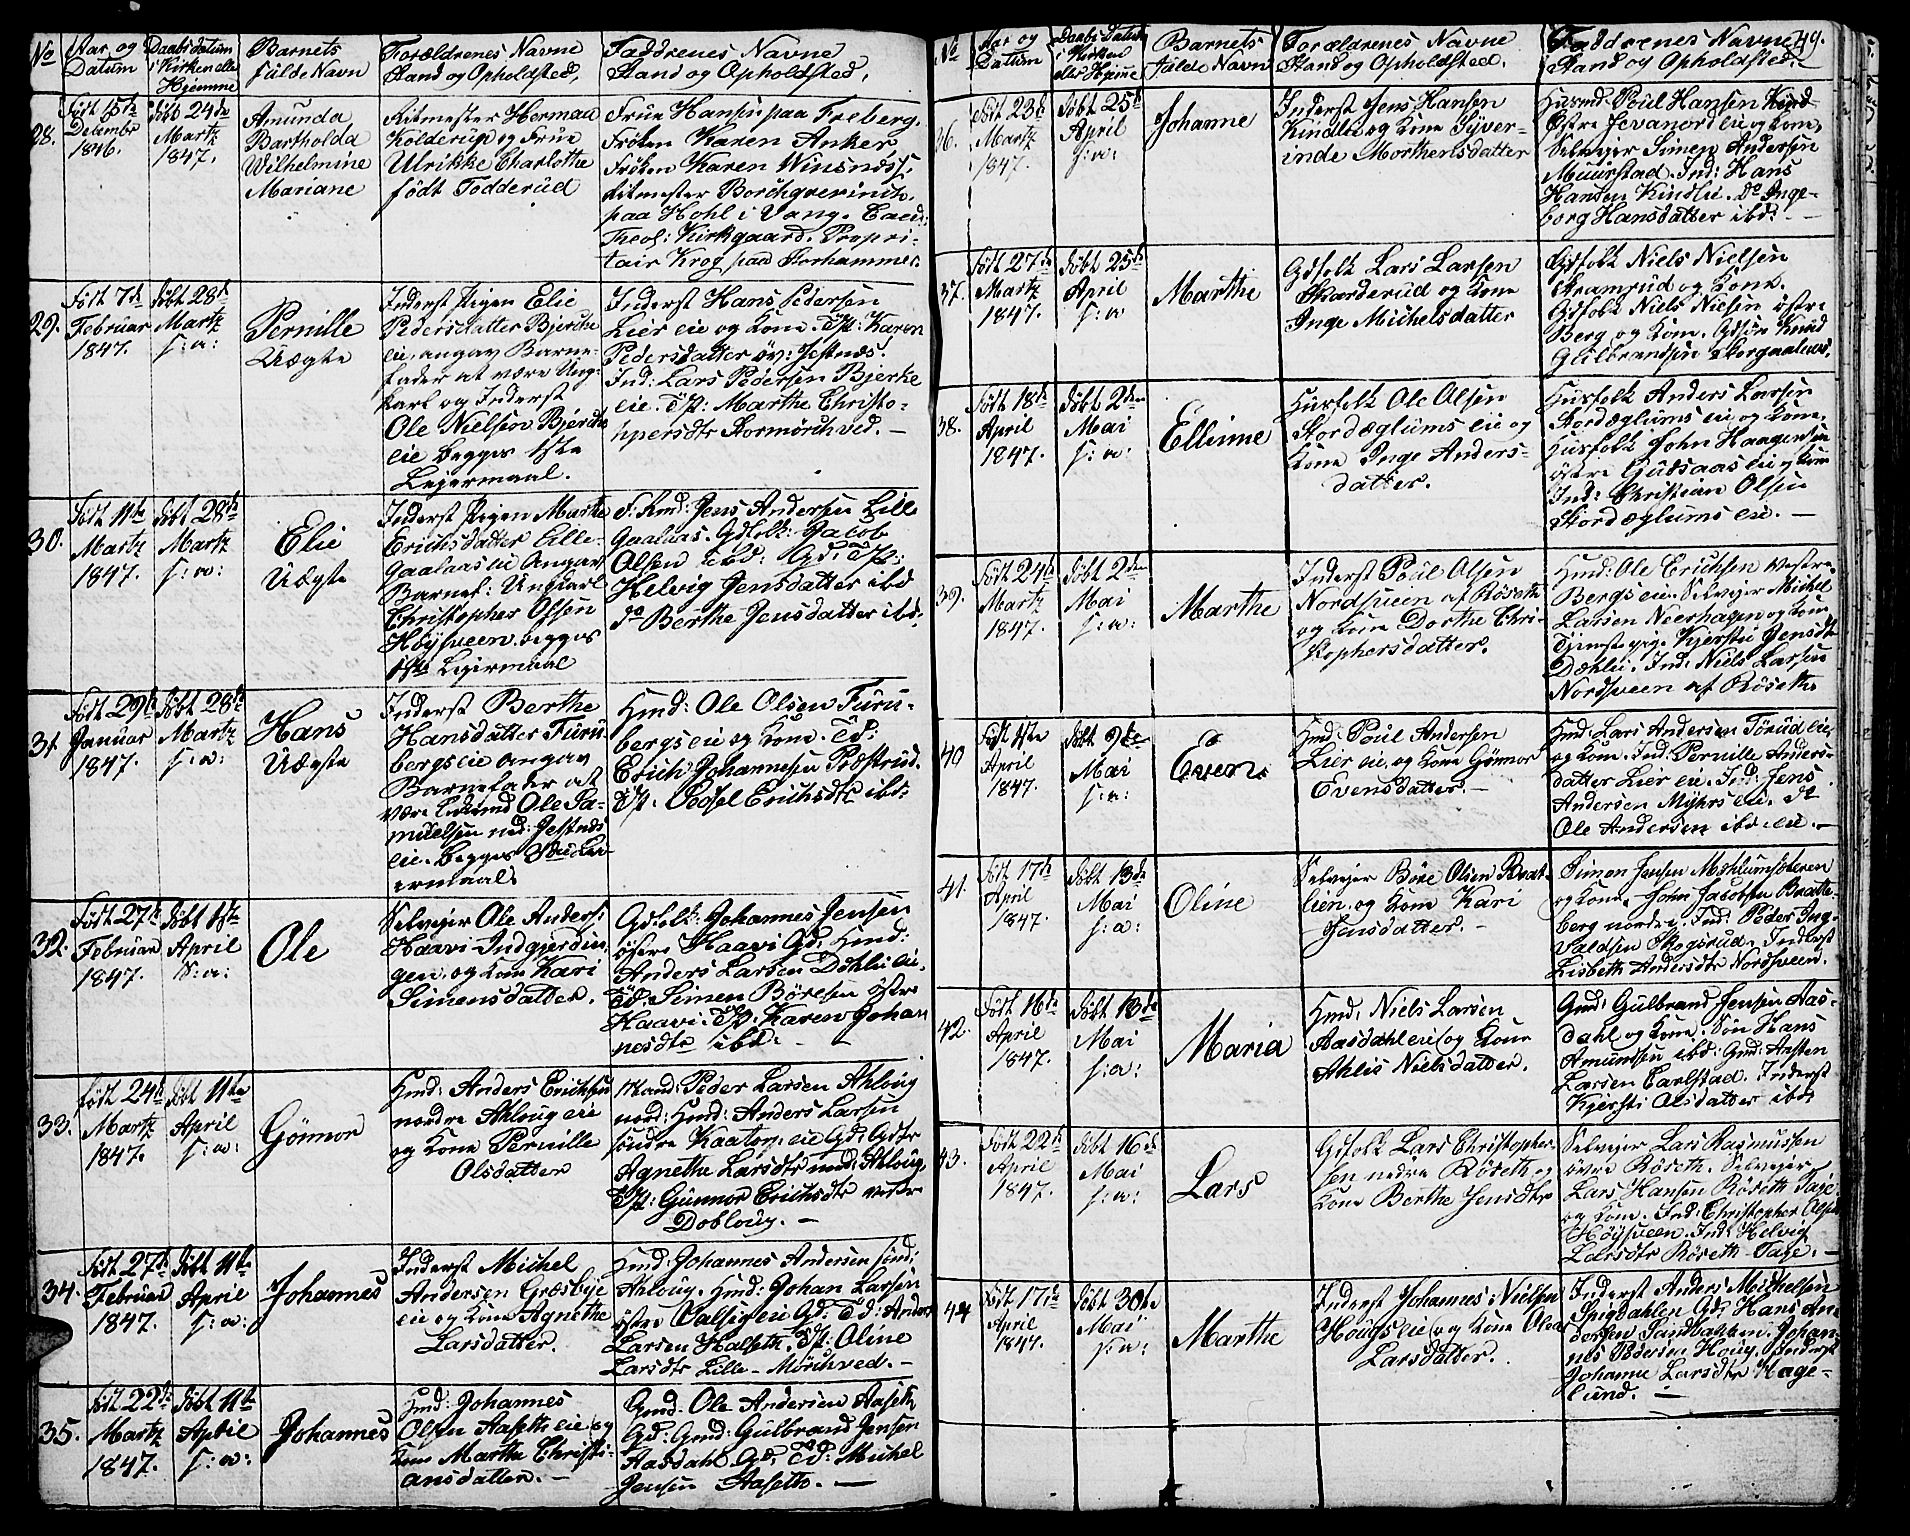 No
Aar og
Datum
Daabsdatum
i Kirken elle
Hjemme
Barnets
fulde Navn
Forældrenes Navne
Stand og Opholdsted,
Faddrenes Navne
Stand og Opholdsted,
28.
Født 15de
Decembr
1846.
døbt 24de
Martz
1847.
Amunda
Bartholda
Wilhelmine
Mariane
Ritmester Herman
Kolderup og Frue
Ulrikke Charlotthe
født Todderud
Frue
paa Freberg.
Frøken Karen Anker
Frøken Karen
Ritmester Borchgrevinch
paa Hohl i Vang. Cand:
Theol: Kirkgaard. Propri-
tair Krog paa Storhammer.
29.
Født 7de
Februar
1847.
døbt 28de
Martz
s: a:
Pernille
Uægte
Inderst Pigen Elie
Pedersdatter Bjerche
eie, angav Barne-
fader at være Ung-
karl og Inderst
Ole Nielsen Bjerche
eie begges 1ste
Leiermaal.
Inderst Hans Pedersen
Lier eie og Kone. TP: Karen
Pedersdatter øv: Jestnes.
Ind: Lars Pedersen Bjerke
eie. TP: Marthe Christo-
phersdtr Stormørchved. —
30.
Født 11te
Martz
1847.
døbt 28de
Martz
s: a:
Elie
Uægte
Inderst Pigen Marthe
Erichsdatter Lille-
gaalaas eie Angav
Barnef: Ungkarl
Christopher Olsen
Høysveen. begges
1ste Leiermaal
Jens Andersen Lille
Gaalaas. Gdfolk: Jacob
Olsen ibd: Gd: TP:
Helvig Jensdatter ibd
do Berthe Jensdatter ibd.
31.
Født 29de
Januar
1847.
døbt 28de
Martz
s: a:
Hans
Uægte
Inderst Berthe
Hansdatter Furu-
bergs eie angav
Barnefader at
være
Ole Sa-
muelsen ned: Jestnes
eie. begges
Lei-
ermaal.
Hmd: Ole Olsen Furu-
bergs eie og Kone. TD:
Erich Johannesen Præstrud.
TP:
Erichsdtr ibd:
32.
Født 27de
Februar
1847.
døbt
April
s: a:
Ole
Selvejer Ole Anders:
Haavi Indgjerdin
gen. og Kone Kari
Simensdatter.
Gdfolk: Johannes Jensen
østre Haavi Gd: Hmd:
Anders Larsen Dæhli eie.
TD: Simen Børesen østre
Haavi. TP: Karen Johan
nesdtr ibd: —
33.
født 24de
Martz
1847.
døbt 11te
April
s: a:
Gønnor
Hmd: Anders Erichsen
nordre Ahloug eie
og Kone Pernille
Olsdatter
Mand: Peder Larsen Ahloug
nord: Hmd: Anders Larsen
søndre Kaatorp eie Gd: Gdtr
Agnethe Larsdtr ned: Ahloug
TP: Gunnor Erichsdtr vestre
Dobloug. —
34.
født 27de
Februar
1847.
døbt 11te
April
s: a:
Johannes
Inderst Michel
Andersen Græsbye
eie og Kone Agnethe
Larsdatter.
Hmd: Johannes Andersen sønd:
Ahloug. Hmd: Johan Larsen
østre Valsig eie Gd: TD: Anders
Larsen Halseth. TP: Oline
Larsdtr Lille-Mørchved. —
35.
født 22de
Martz
1847.
døbt 11te
April
s: a:
Johannes
Hmd: Johannes
Olsen Aaseth eie og
Kone Marthe Christi-
ansdatter. —
Gmd: Ole Andersen Aaseth
Gd: Gmd: Gulbrand Jensen
Aasdahl Gd: TD: Michel
Jensen Aaseth. —
No
Aar og
Datum
Daabs Datum
i Kirken
eller Hjemme
Barnets
fulde Navn
Forældrenes Navne
Stand og Opholdsted.
Faddrenes Navne
Stand og Opholdsted.
49.
36.
født 23de
Martz
1847.
døbt 25de
April
s: a:
Johanne
Inderst Jens Hansen
Kindlie og Kone Syver-
inde Morthensdatter
Husmd: Poul Hansen
Østre Jevanord eie og Kone,
Selvejer Simen Andersen
Muurstad. Ind: Hans
Hansen Kindlie. Do Inge-
borg Hansdatter ibd: —
37.
født 27de
Martz
1847.
døbt 25de
April
s: a
Marthe
Gdfolk Lars Larsen
Skarderud og Kone
Inge Michelsdatter
Gdfolk Niels Nielsen
Aramrud og Kone.
Gdfolk Niels Nielsen østre
Berg og Kone. Gdsøn Knud
Gulbrandsen
38.
født 18de
April
1847.
døbt 2den
Mai
s: a:
Ellinne
Husfolk Ole Olsen
Stordæglums eie og
Kone Inge Anders-
datter.
Husfolk Anders Larsen
Stordæglums eie og Kone.
Husfolk John Haagensen
østre Gudsaas eie og Kone
Ind: Christian Olsen
Stordæglums eie. —
39.
født 24de
Martz
1847.
døbt 2den
Mai
s: a:
Marthe
Inderst Poul Olsen
Nordsveen af Røseth
og Kone Dorthe Chri-
stophersdatter.
Hmd: Ole Erichsen vestre
Bergs eie. Selvejer Michel
Larsen Neerhagen og Kone
Tjenstepige Kjersti Jensdtr
Dæhli. Ind: Niels Larsen
Nordsveen af Røseth
40
født 4te
April
1847.
døbt 9de
Mai
s: a:
Even.
Hmd: Poul Andersen
Lier eie, og Kone Gønnor
Evensdatter. —
Hmd: Lars Andersen Torud eie,
og Kone. Ind: Pernille Anders-
datter Lier eie. Ind: Jens
Andersen Myhrs eie. do
Ole Andersen ibd: eie. —
41.
født 17de
April
1847.
døbt 13de
Mai
s: a:
Oline
Selvejer Børe Olsen Braat-
lien. og Kone Kari
Jensdatter. —
Simon Jensen Mæhlumseteren
og Kone. John Jacobsen Braatte-
berg nordre. Ind: Peder Ing-
valdsen Skogsrud. Inderst
Lisbeth Andersdtr Nordsveen.
42.
født 16de
April
1847.
døbt 13de
Mai
s: a:
Maria
Hmd: Niels Larsen
Aasdahl eie og Kone
Ahlis Nielsdatter.
Gmd: Gulbrand Jensen Aas-
dahl og Kone. Søn Hans
Amundsen ibd: Gmd: Aasten
Larsen Carlstad. Inderst
Kjersti Olsdatter ibd:
43.
født 22de
April
1847.
døbt 16de
Mai
s: a:
Lars
Gdfolk Lars Christopher-
sen nedre Røseth og
Kone Berthe Jensdtr
Selvejer Lars Rasmussen
øvre Røseth. Selvejer
Lars Hansen Røseth Sage.
og Kone. Ind: Christopher Olsen
Høysveen. Ind: Helvig
Larsdtr Røseth Sage. —
44
født 17de
April
1847.
døbt 30te
Mai
s: a:
Marthe
Inderst Johannes Nielsen
Hougs eie og Kone Olea
Larsdatter.
Inderst Anders Michelsen
Snigdahlen Gd: Hans An-
dersen Sandbakken. Johan-
nes Pedersen Houg. Inderst
Johanne Larsdtr Hage-
lund. —